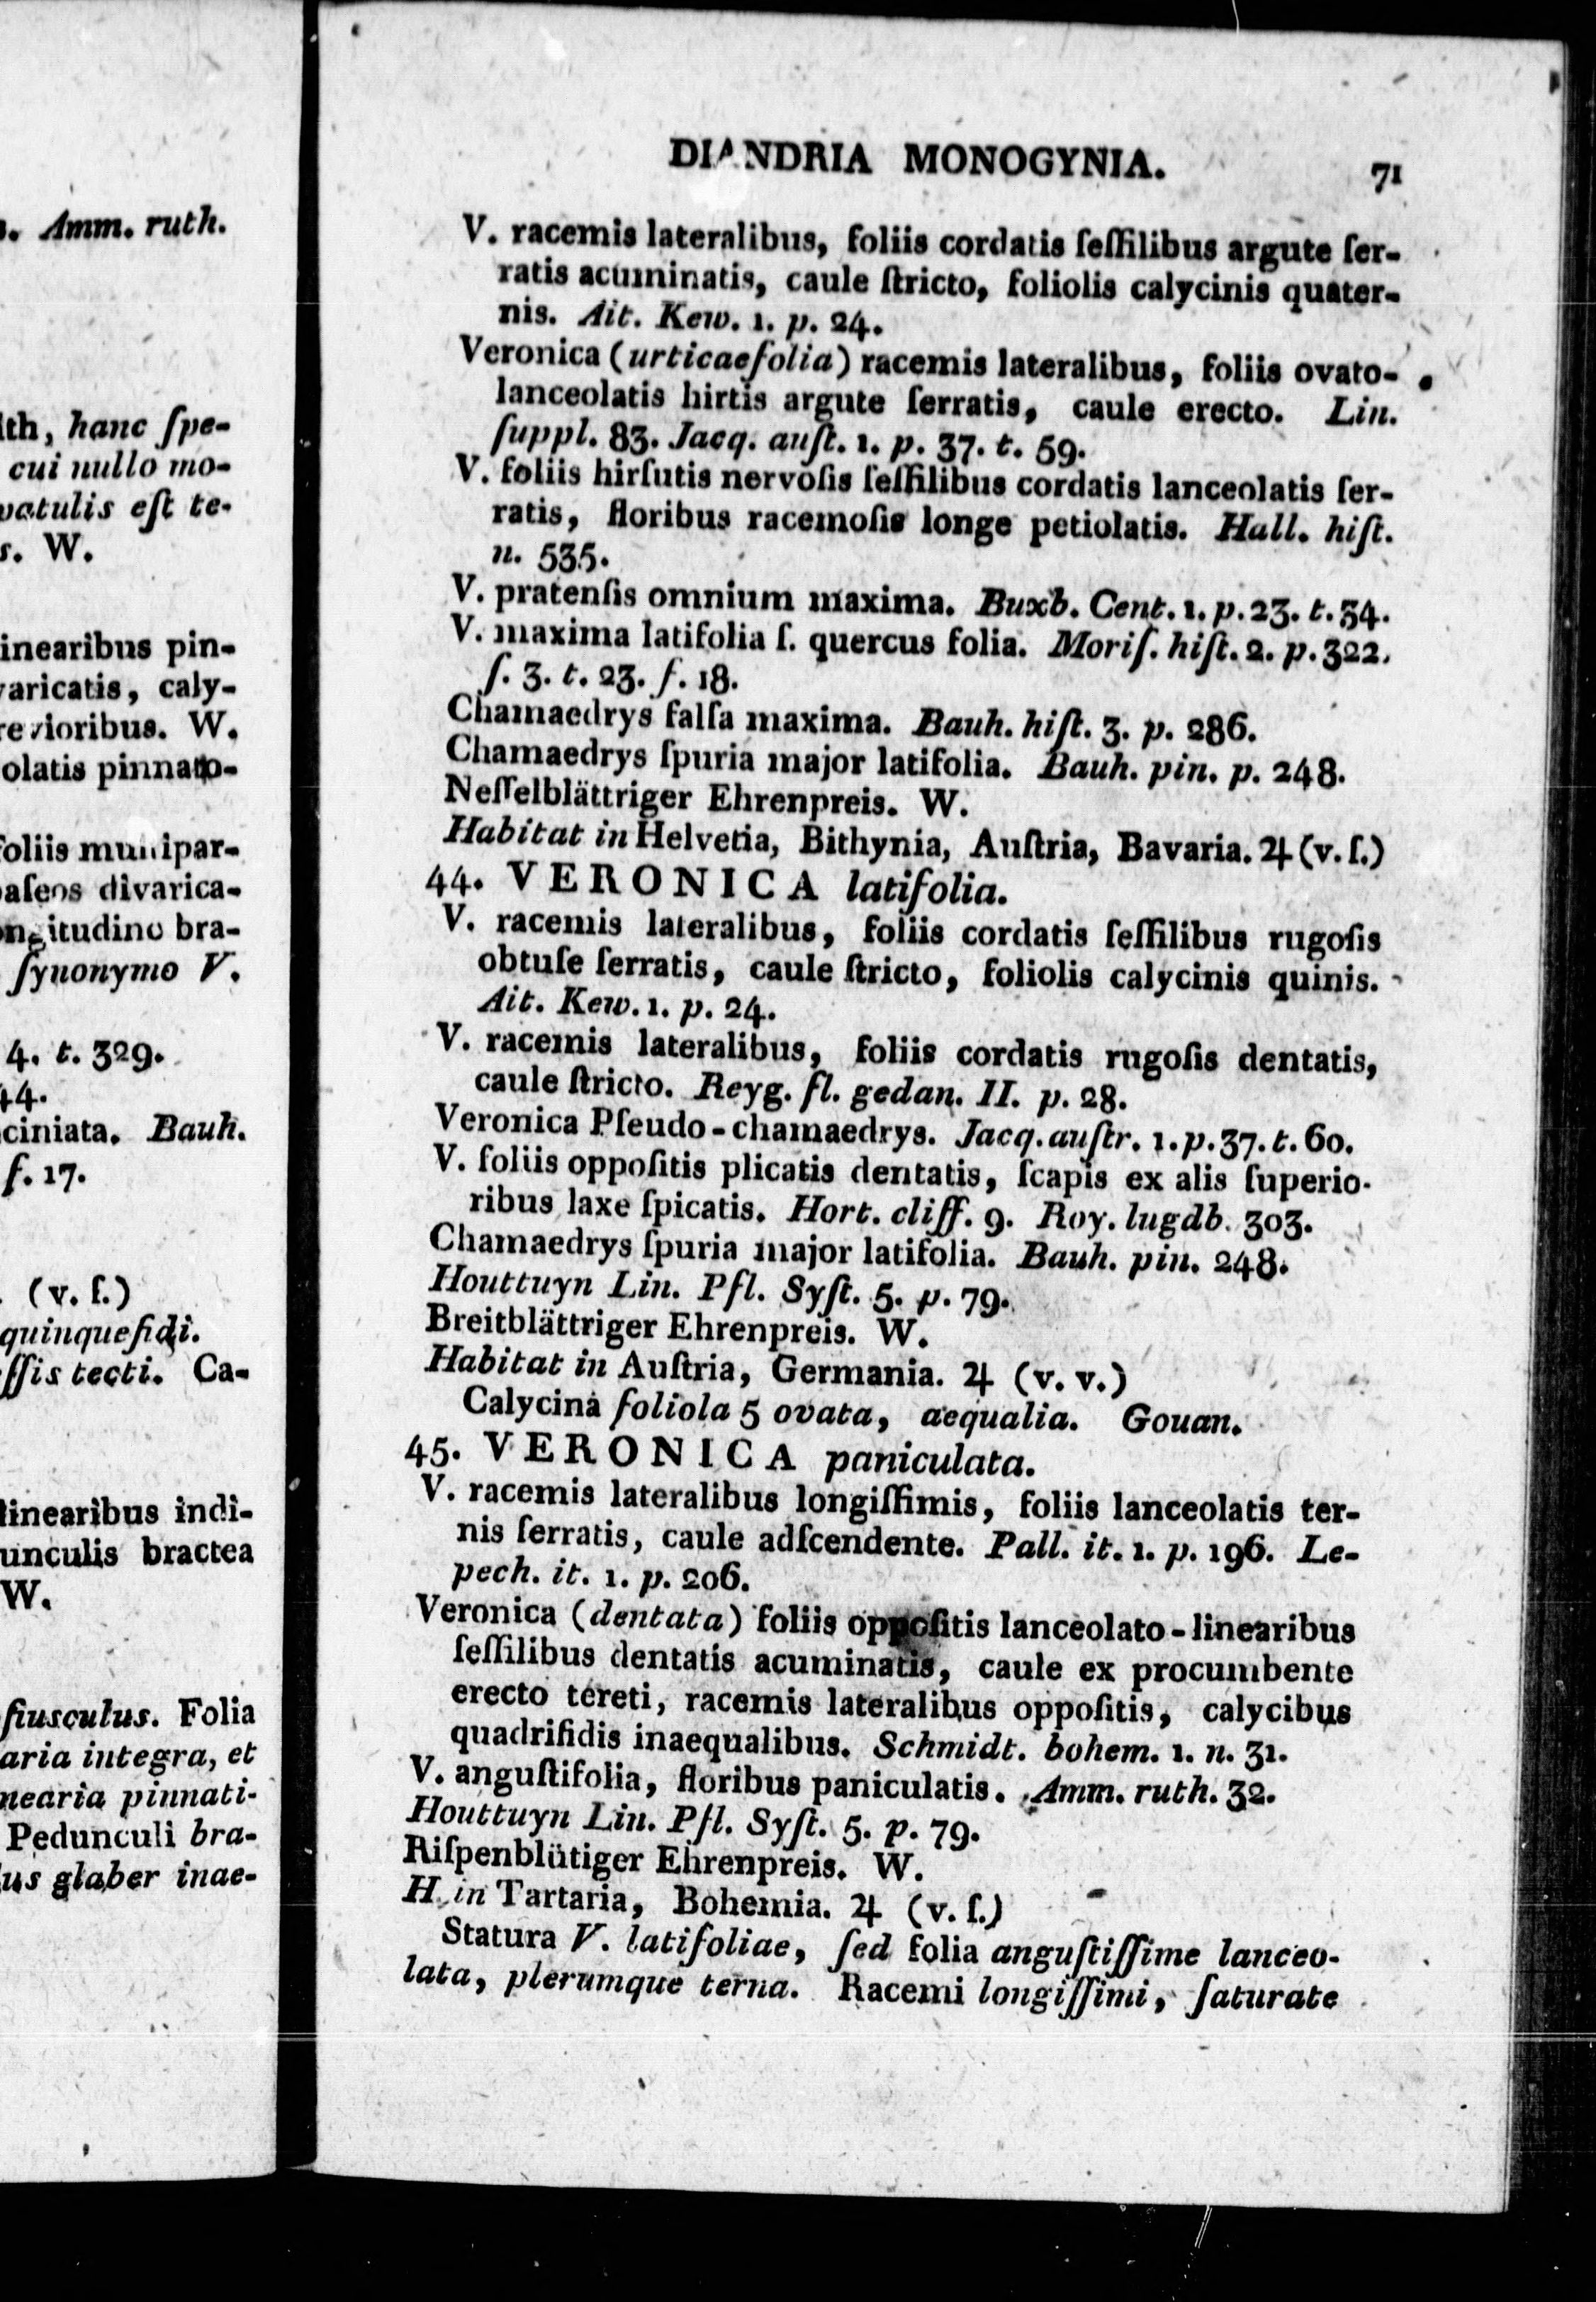 . Amm. ruth.
lth, hanc ſpe-
cui nullo mo-
vatulis eſt te-
s. W.
inearibus pin-
varicatis, caly-
revioribus. W.
olatis pinnato-
foliis multipar-
baſeos divarica-
ongitudine bra-
ſynonymo V.
4. t. 329.
44.
ciniata. Bauh.
f. 17.
. (v. ſ.)
quinquefidi.
ſſis tecti. Ca-
linearibus indi-
unculis bractea
W.
ſiusculus. Folia
aria integra, et
nearia pinnati-
Pedunculi bra-
lus glaber inae-
DIANDRIA MONOGYNIA. 71
V. racemis lateralibus, foliis cordatis ſeſſilibus argute ſer-
ratis acuminatis, caule ſtricto, foliolis calycinis quater-
nis. Ait. Kew. 1. p. 24.
Veronica (urticaefolia) racemis lateralibus, foliis ovato-
lanceolatis hirtis argute ſerratis, caule erecto. Lin.
ſuppl. 83. Jacq. auſt. 1. p. 37. t. 59.
V. foliis hirſutis nervoſis ſeſſilibus cordatis lanceolatis ſer-
ratis, floribus racemoſis longe petiolatis. Hall. hiſt.
n. 535.
V. pratenſis omnium maxima. Buxb. Cent. 1. p. 23. t. 34.
V. maxima latifolia ſ. quercus folia. Moriſ. hiſt. 2. p. 322.
ſ. 3. t. 23. f. 18.
Chamaedrys falſa maxima. Bauh. hiſt. 3. p. 286.
Chamaedrys ſpuria major latifolia. Bauh. pin. p. 248.
Neſſelblättriger Ehrenpreis. W.
Habitat in Helvetia, Bithynia, Auſtria, Bavaria. ♃ (v. ſ.)
44. VERONICA latifolia.
V. racemis lateralibus, foliis cordatis ſeſſilibus rugoſis
obtuſe ſerratis, caule ſtricto, foliolis calycinis quinis.
Ait. Kew. 1. p. 24.
V. racemis lateralibus, foliis cordatis rugoſis dentatis,
caule ſtricto. Reyg. fl. gedan. II. p. 28.
Veronica Pſeudo-chamaedrys. Jacq. auſtr. 1. p. 37. t. 60.
V. foliis oppoſitis plicatis dentatis, ſcapis ex alis ſuperio-
ribus laxe ſpicatis. Hort. cliff. 9. Roy. lugdb. 303.
Chamaedrys ſpuria major latifolia. Bauh. pin. 248.
Houttuyn Lin. Pfl. Syſt. 5. p. 79.
Breitblättriger Ehrenpreis. W.
Habitat in Auſtria, Germania. ♃ (v. v.)
Calycina foliola 5 ovata, aequalia. Gouan.
45. VERONICA paniculata.
V. racemis lateralibus longiſſimis, foliis lanceolatis ter-
nis ſerratis, caule adſcendente. Pall. it. 1. p. 196. Le-
pech. it. 1. p. 206.
Veronica (dentata) foliis oppoſitis lanceolato-linearibus
ſeſſilibus dentatis acuminatis, caule ex procumbente
erecto tereti, racemis lateralibus oppoſitis, calycibus
quadrifidis inaequalibus. Schmidt. bohem. 1. n. 31.
V. anguſtifolia, floribus paniculatis. Amm. ruth. 32.
Houttuyn Lin. Pfl. Syſt. 5. p. 79.
Riſpenblütiger Ehrenpreis. W.
H. in Tartaria, Bohemia. ♃ (v. ſ.)
Statura V. latifoliae, ſed folia anguſtiſſime lanceo-
lata, plerumque terna. Racemi longiſſimi, ſaturate